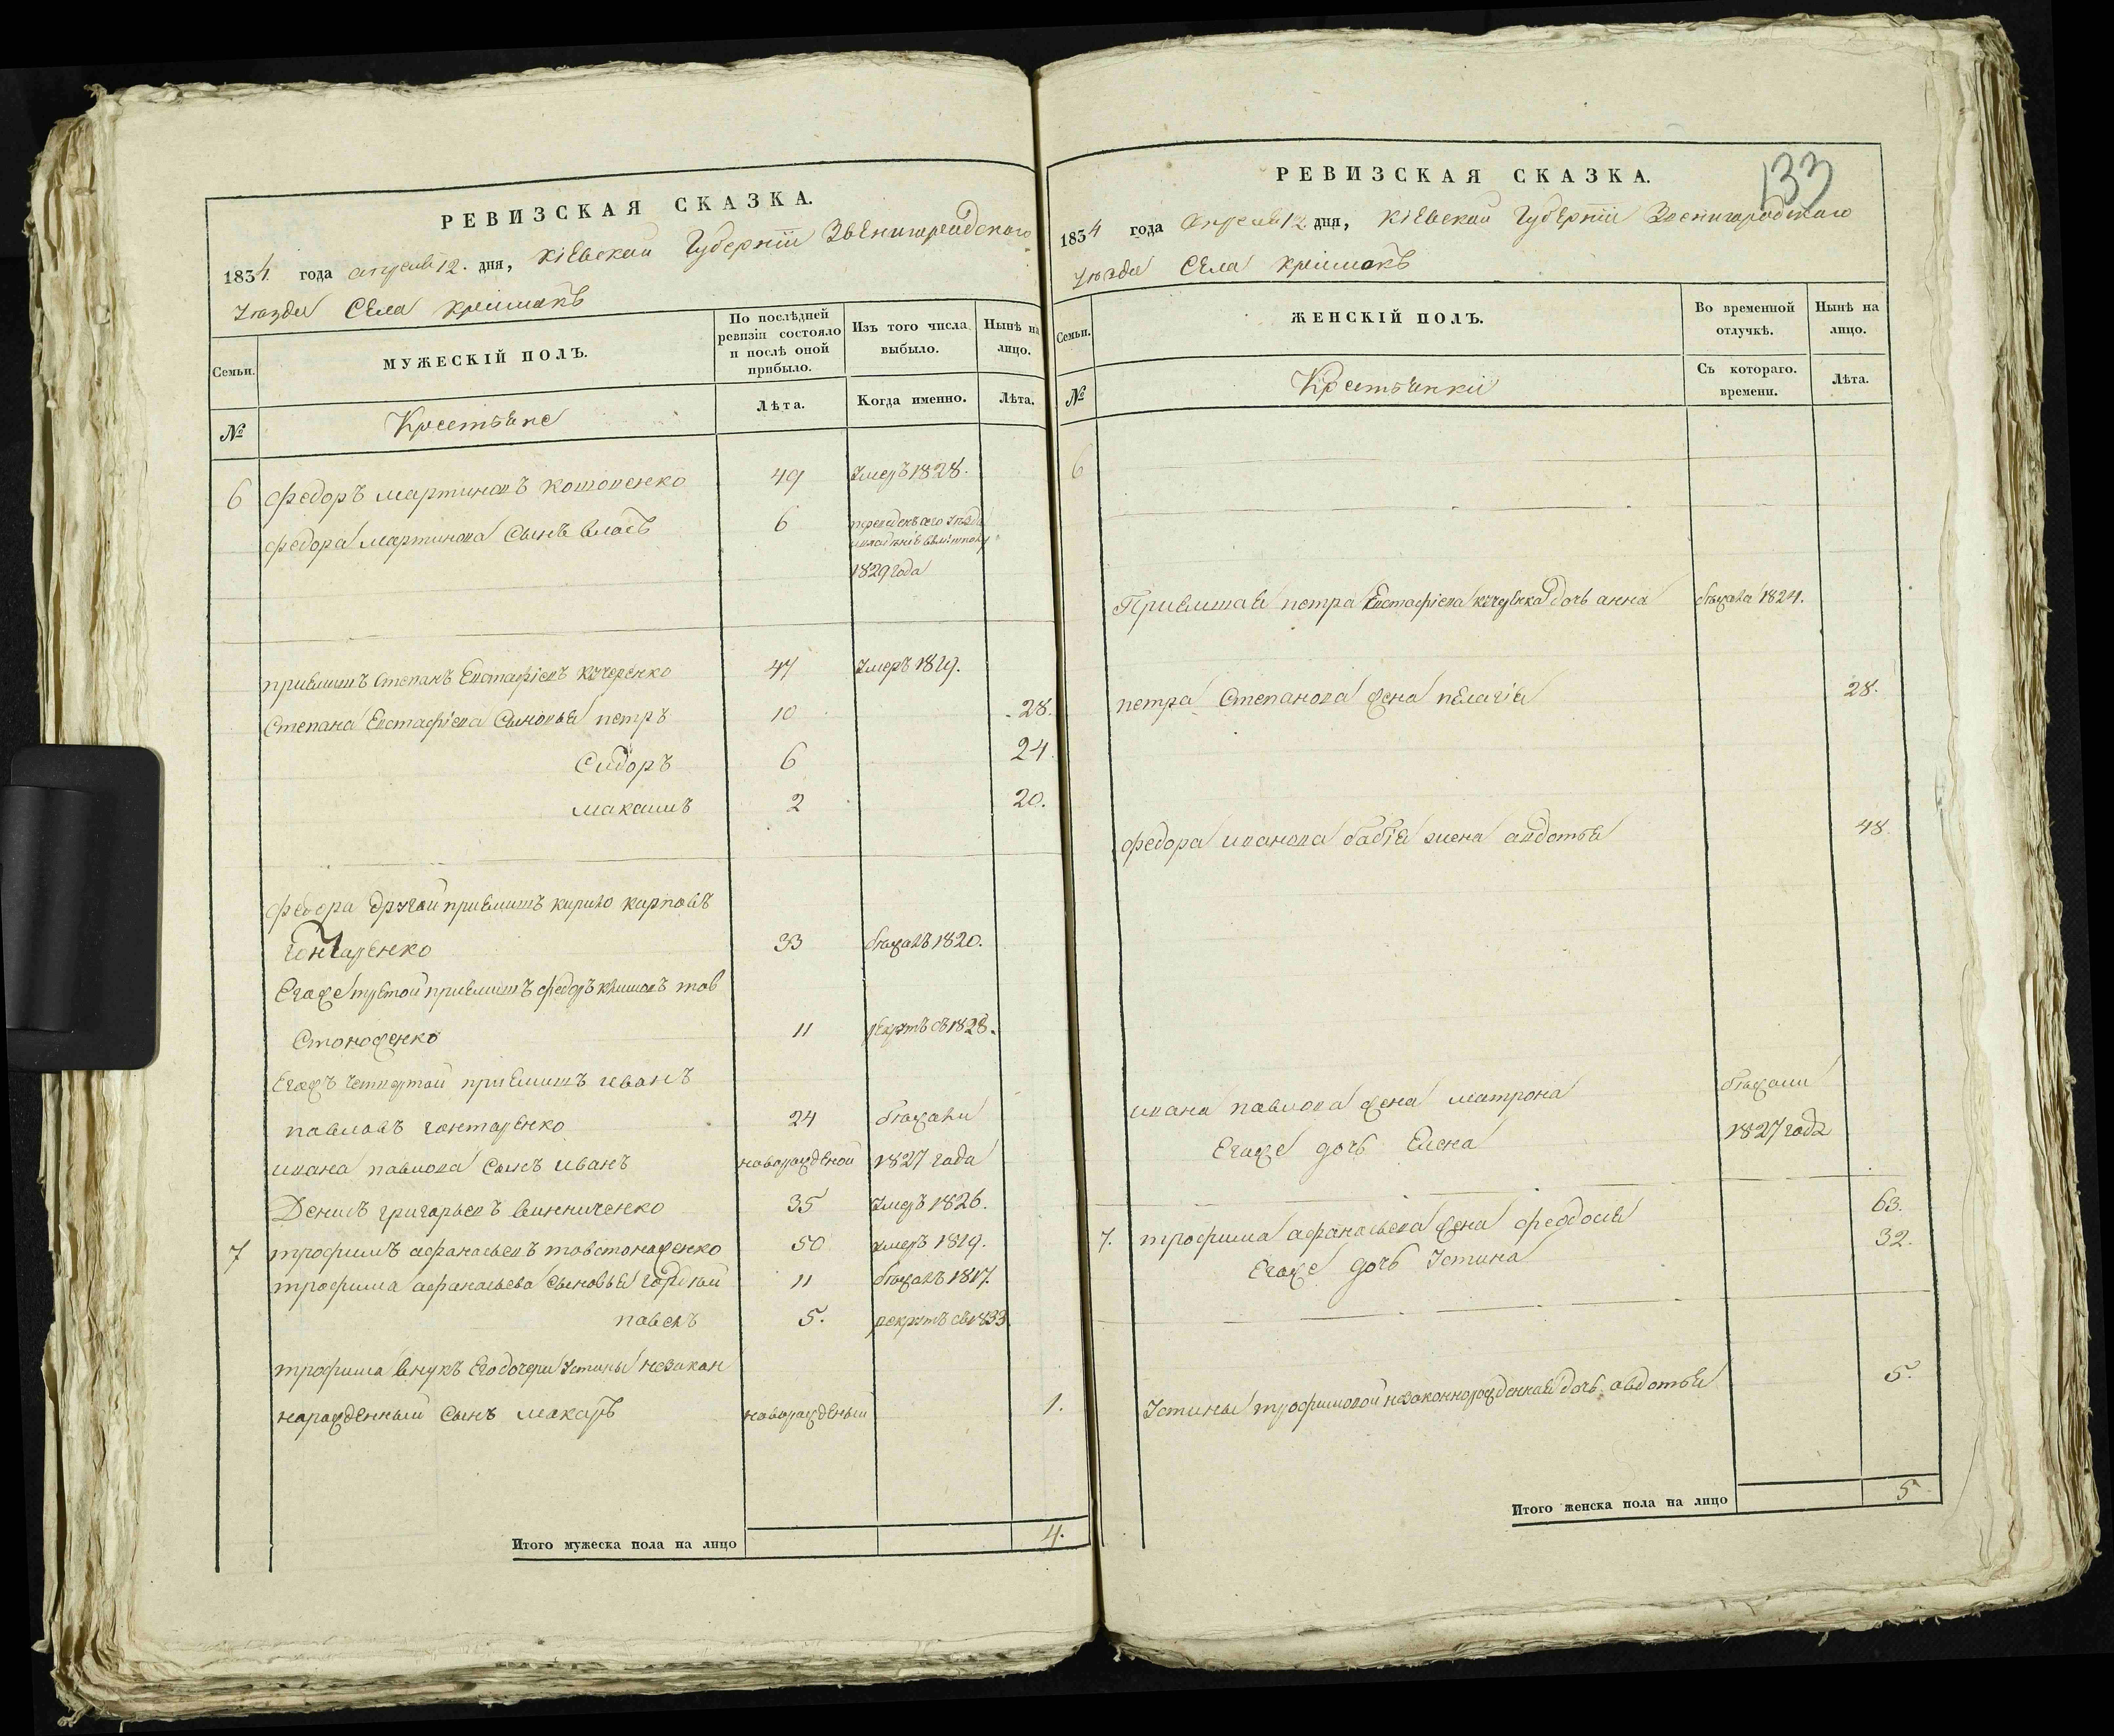 РЕВИЗСКАЯ СКАЗКА.
1834 года апреля 12. дня, Кіевской Губерніи Звенигородского
Уезда Села
Семьи.
МУЖЕСКІЙ ПОЛЪ.
По послѣдней ревизіи состояло и послѣ оной прибыло.
Изъ того числа выбыло.
Нынѣ на лицо.
№
Крестьяне
Лѣта.
Когда именно.
Лѣта.
6 Федоръ Мартиновъ 49 Умеръ 1828.
Федора Мартинова Сынъ Власъ 6
1829 года
приемишъ Степанъ Евстафіевъ Кучеренко 47 Умеръ 1819.
Степана Евстафіева Сыновья петръ 10 28.
Сидоръ 6 24.
Максимъ 2 20.
Федора другой приемишъ кирило карповъ
гончаренко 33 бежалъ 1820.
Егоже третой приемишъ федоръ тов
Стоноженко 11 рекрутъ съ 1828.
Егожъ четвертой приемишъ иванъ
павловъ гонтаренко 24 бежали
ивана павлова Сынъ иванъ новорожденой 1827 года
Денисъ григорьевъ винниченко 35 Умеръ 1826.
7 трофимъ афанасьевъ товстоноженко 50 умеръ 1819.
трофима афанасьева Сыновья гордей 11 бежалъ 1817.
павелъ 5. рекрутъ съ 1833.
трофима внукъ Его дочери Устины незакон
норожденный Сынъ макаръ новорожденый 1.
Итого мужеска пола на лицо 4.
133
РЕВИЗСКАЯ СКАЗКА.
1834 года апреля 12 дня, Кіевской Губерніи Звенигородского
Уезда Села
Семьи.
ЖЕНСКІЙ ПОЛЪ.
Во временной отлучкѣ.
Нынѣ на лицо.
№
Крестьянки
Съ котораго времени.
Лѣта.
6
Приемишъ петра Евстафіева дочь анна бежала 1824.
петра Степанова жена пелагія 28.
федора иванова бабія жена авдотья 48.
ивана павлова жена матрона бежали
Егоже дочь Елена 1827 года
7. трофима афанасьева жена феодосія 63.
Егоже дочь Устина 32.
Устины трофимовой незаконнорожденная дочь авдотья 5.
Итого женска пола на лицо 5